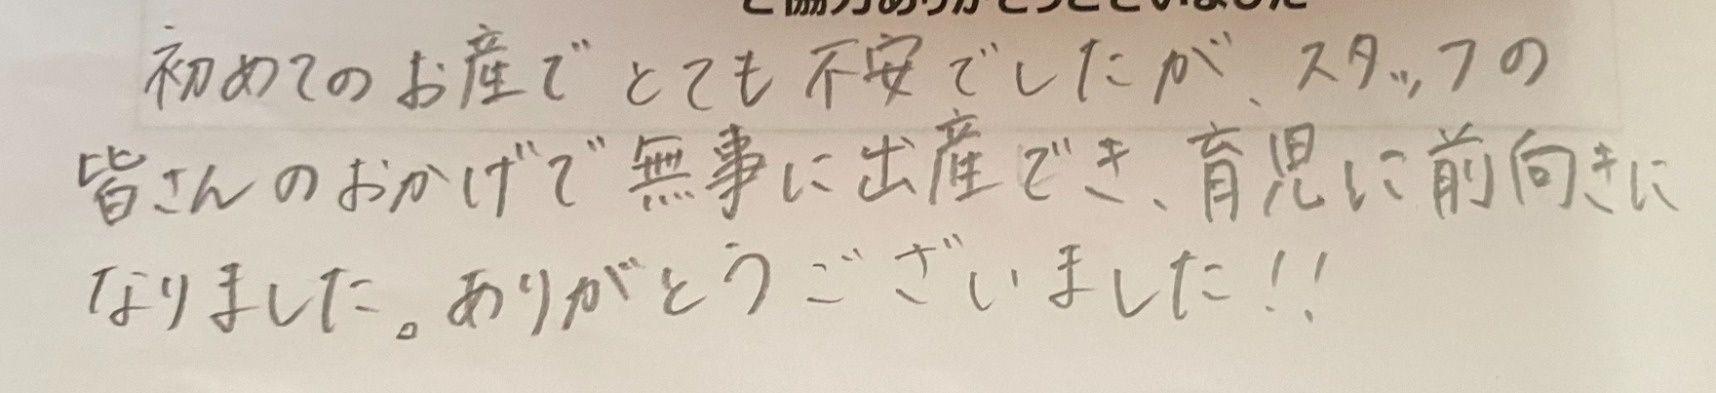 ご協力ありがとうございました
初めてのお産でとても不安でしたが、スタッフの
皆さんのおかげで無事に出産でき、育児に前向きに
なりました。ありがとうございました!!